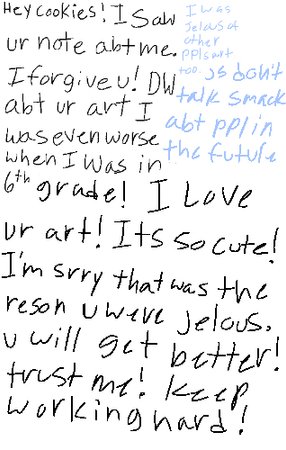 Hey Cookies! I Saw
ur note abt me.
I forgive u! DW
abt ur art I
was even worse
when I was in
6th grade! I Love
ur art! Its so cute!
I'm srry that was the
reson u were jelous.
u will get better!
trust me! keep
working hard!
I was
Jelous of
other
ppls art
too. Js don't
talk smack
abt ppl in
the future